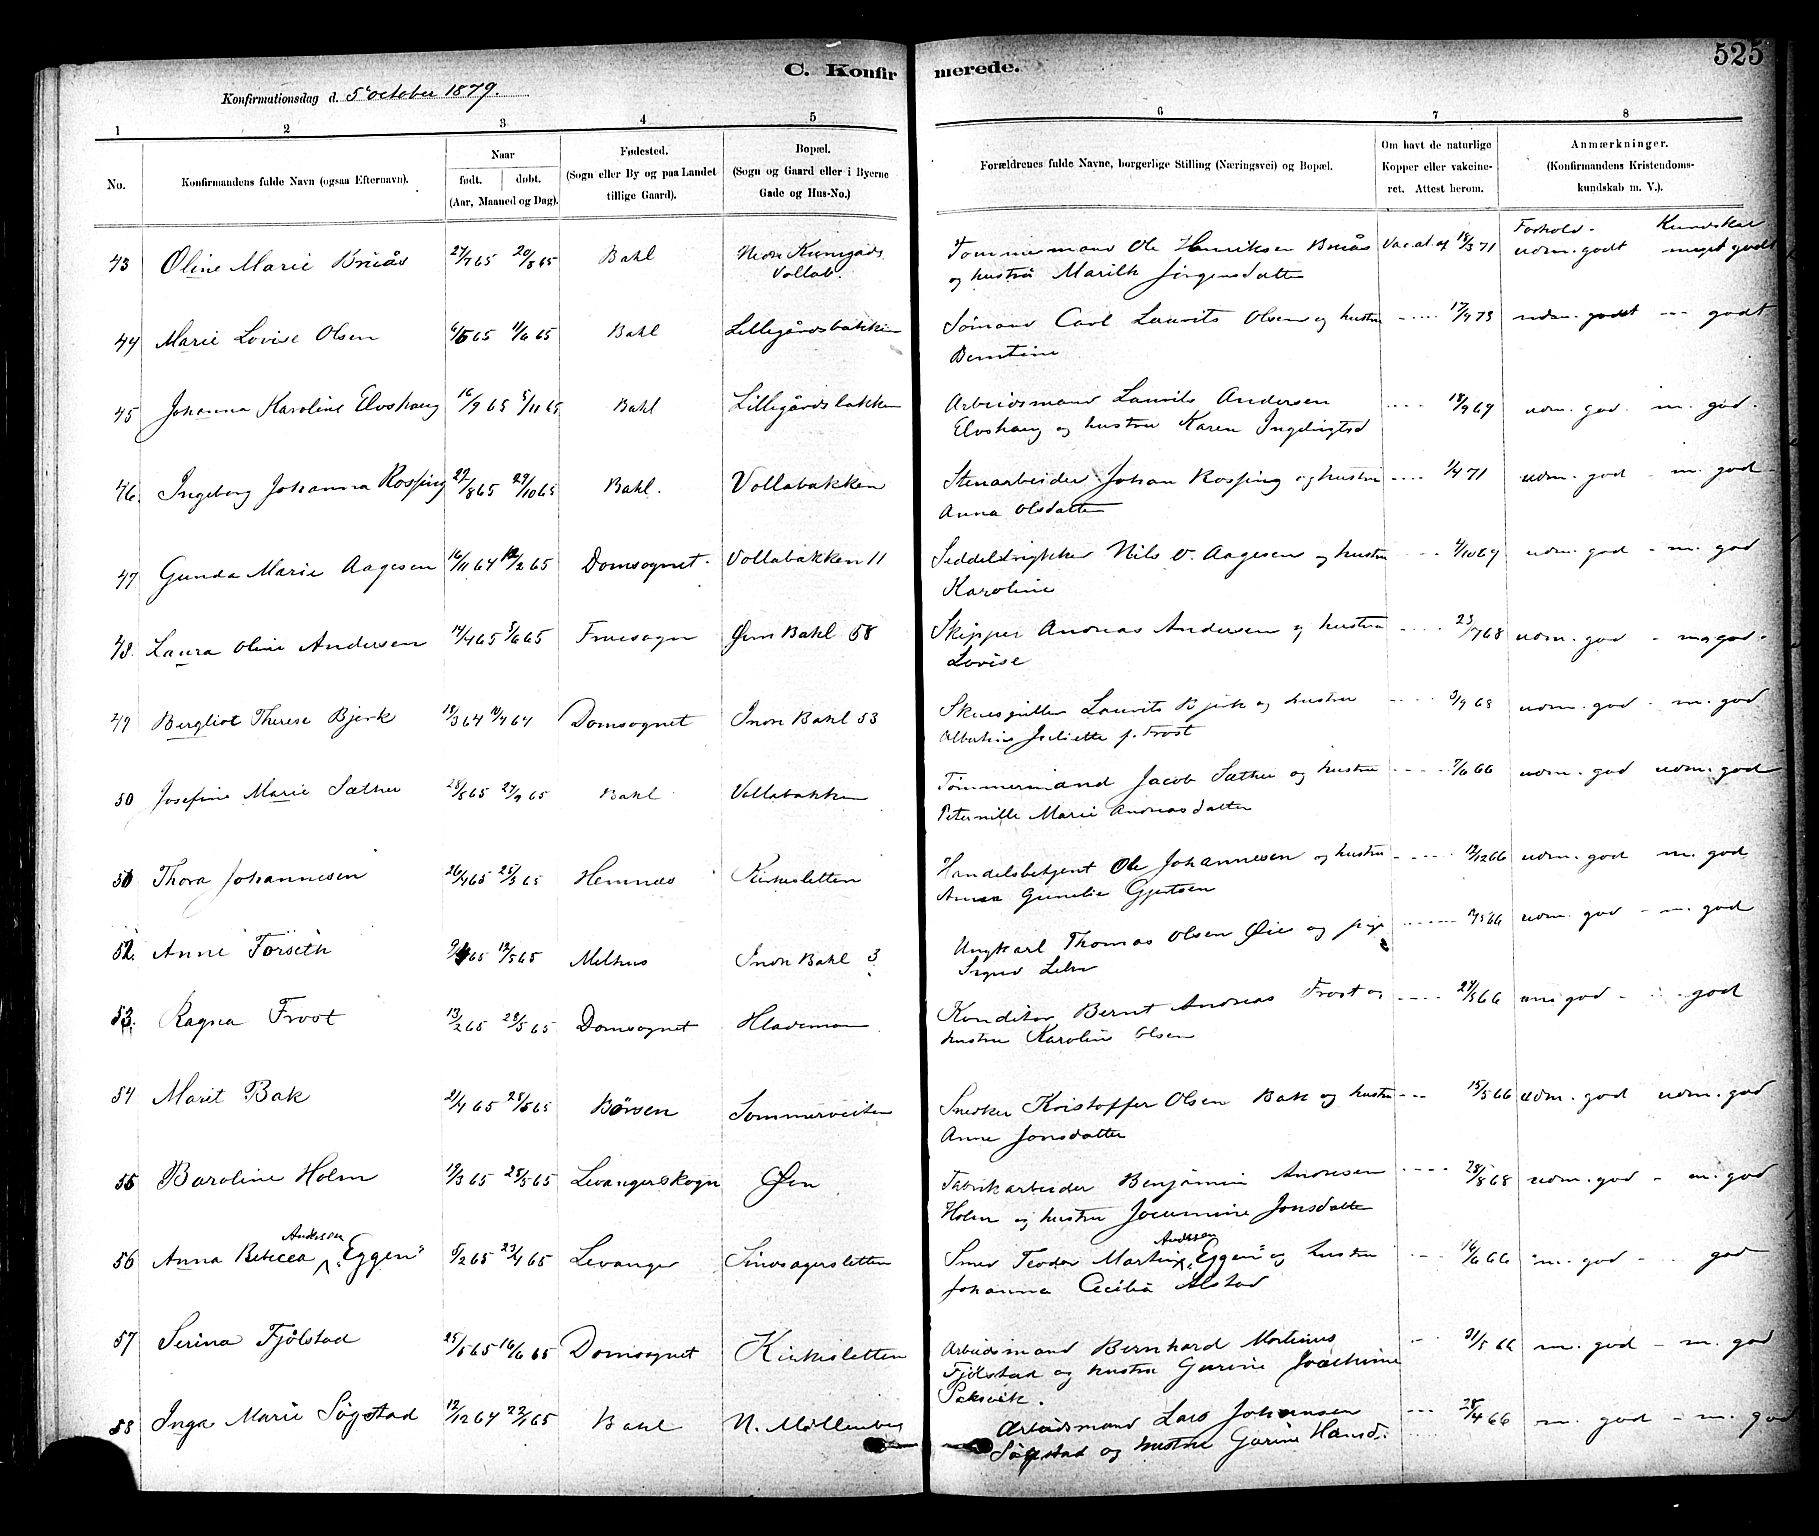 525
C. Konfir merede.
Konfirmationsdag d. 5 october 1879.
1 2 3 4 5 6 7 8
No. Konfirmandens fulde Navn (ogsaa Efternavn). Naar født. døbt. (Aar, Maaned og Dag). Fødested. (Sogn eller By og paa Landet tillige Gaard). Bopæl. (Sogn og Gaard eller i Byerne Gade og Hus-No.) Forældrenes fulde Navne, borgerlige Stilling (Næringsvei) og Bopæl. Om havt de naturlige Kopper eller vakcineret. Attest herom. Anmærkninger. (Konfirmandens Kristendomskundskab m. V.).
Forhold - Kundskab
43 Oline Marie Bruås 27/7 65 20/8 65 Bakl Vollab. Tømmermand Ole Henriksen Bruås Vac.at. af 18/3 71 udm. godt meget godt
og hustru Marith Jørgensdatter
44 Marie Lovise Olsen 6/5 65 11/6 65 Bakl Lillegårdsbakken Sømand Carl Laurits Olsen og hustru ---- 17/9 73 udm. godt --- godt
Berntine
45 Johanna Karoline Elvshaug 16/9 65 5/11 65 Bakl Lillegårdsbakken Arbeidsmand Laurits Andersen ---- 18/9 67 udm. god. m. god.
Elvshaug og hustru Karen Ingebrigtsd
46. Ingeborg Johanna Rossing 22/8 65 29/10 65 Bakl. Vollabakken Stenarbeider Johan Rossing og hustru ---- 1/4 71 udm. god - m. god
Anna Olsdatter
47 Gunda Marie Aagesen 16/11 64 12/2 65 Domsognet. Vollabakken 11 Seddeltrykker Nils O. Aagesen og hustru --- 4/10 67 udm. god - m. god
Karoline
48. Laura Oline Andersen 14/4 65 5/6 65 Fruesogn Øvre Bakl 58 Skipper Andreas Andersen og hustru ---- 23/7 68 udm. god - mgod.
Lovise
49 Bergliot Therese Bjerk 18/3 64 64 Domsognet Indre Bakl 53 Skuespiller Laurits Bjerk og hustru ---- 3/9 68 udm. god - m. god
Albertine Juliette f. Frost
50 Josefine Marie Sæther 28/5 65 27/9 65 Bakl Vollabakken Tømmermand Jacob Sæther og hustru ---- 7/6 66 udm. god udm. god
Peternille Marie Andreasdatter
51 Thora Johannesen 26/4 65 25/5 65 Hemnæs Kirkesletten Handelsbetjent Ole Johannesen og hustru ---- 12/12 66 udm. god m. god
Anna Gunelie Gjertsen
52. Anne Forseth 65 12/5 65 Melhus Indre Bakl 3 Ungkarl Thomas Olsen Øie og pige ---- 5 66 udm. god - m. god
Sigrid
53. Ragna Frost 13/2 65 28/5 65 Domsognet Hlademoen Konditor Bernt Andreas Frost og ---- 27/5 66 god - god
hustru Karoline Olsen
54 Marit Bak 21/4 65 25/5 65 Børsen Sommerveiten Snedker Kristoffer Olsen Bak og hustru --- 15/5 66 udm. god udm. god
Anne Jonsdatter
55 Baroline Holm 19/3 65 25/5 65 Levangerskogn Øen Fabrikarbeider Benjamin Andresen ---- 28/8 68 udm. god - m. god
Holm og hustru Jocumine Jonsdatter
56 Anna Rebecca Andersen "Eggen" 5/2 65 23/4 65 Levanger Smed Teodor Martin Andersen "Eggen" og hustru --- 16/6 66 m. god - god
Johanna Cecilia Alstad
57 Serina Fjølstad 25/5 65 16/6 65 Domsognet Kirkesletten Arbeidsmand Bernhard Martinus -- 31/5 66 m. god - m. god
Fjølstad og hustru Gurine Joachime
Saksvik.
58 Inga Marie Søgstad 12/12 64 22/1 65 Bakl N. Møllenberg Arbeidsmand Lars Johansen --- 25/4 66 m. god - m. god
Søgstad og hustru Gurine Hansd.